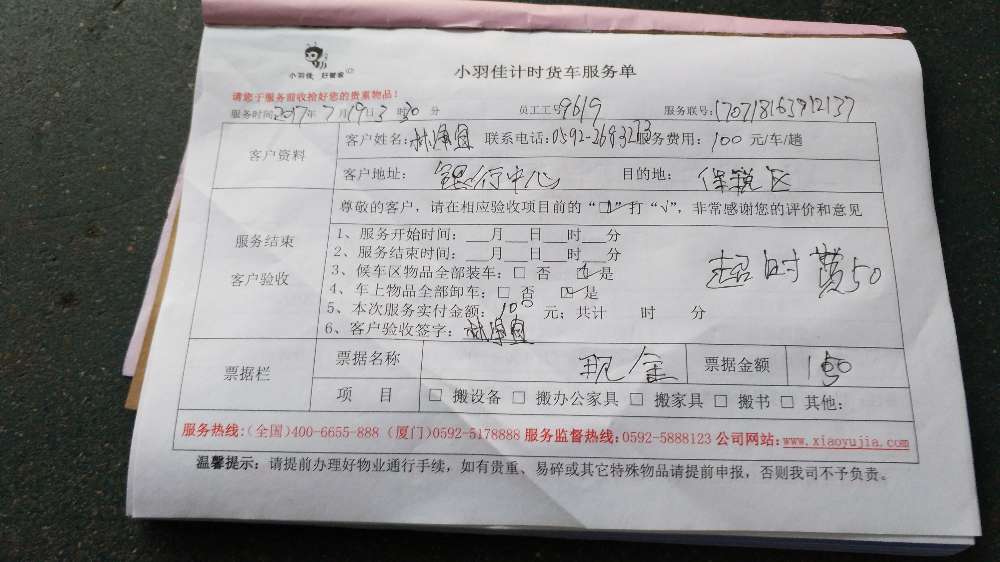 小羽佳 好管家
小羽佳计时货车服务单
请您于服务前收拾好您的贵重物品!
服务时间:2017年7月19日3时30分 员工工号9619 服务联号:170718163912137
客户资料
客户姓名: 联系电话:0592-2693233 服务费用:100元/车/趟
客户地址: 银行中心 目的地: 保税区
服务结束
客户验收
尊敬的客户,请在相应验收项目前的“□”打“√”,非常感谢您的评价和意见
1、服务开始时间:___月___日___时___分
2、服务结束时间:___月___日___时___分
3、候车区物品全部装车:□ 否 ☑ 是
4、车上物品全部卸车:□ 否 ☑ 是
5、本次服务实付金额:100元;共计 时 分
6、客户验收签字:
超时费50
票据栏
票据名称 现金 票据金额 150
项 目 □ 搬设备 □ 搬办公家具 □ 搬家具 □ 搬书 □ 其他:
服务热线:(全国)400-6655-888 (厦门)0592-5178888 服务监督热线:0592-5888123 公司网站:www.xiaoyujia.com
温馨提示:请提前办理好物业通行手续,如有贵重、易碎或其它特殊物品请提前申报,否则我司不予负责。